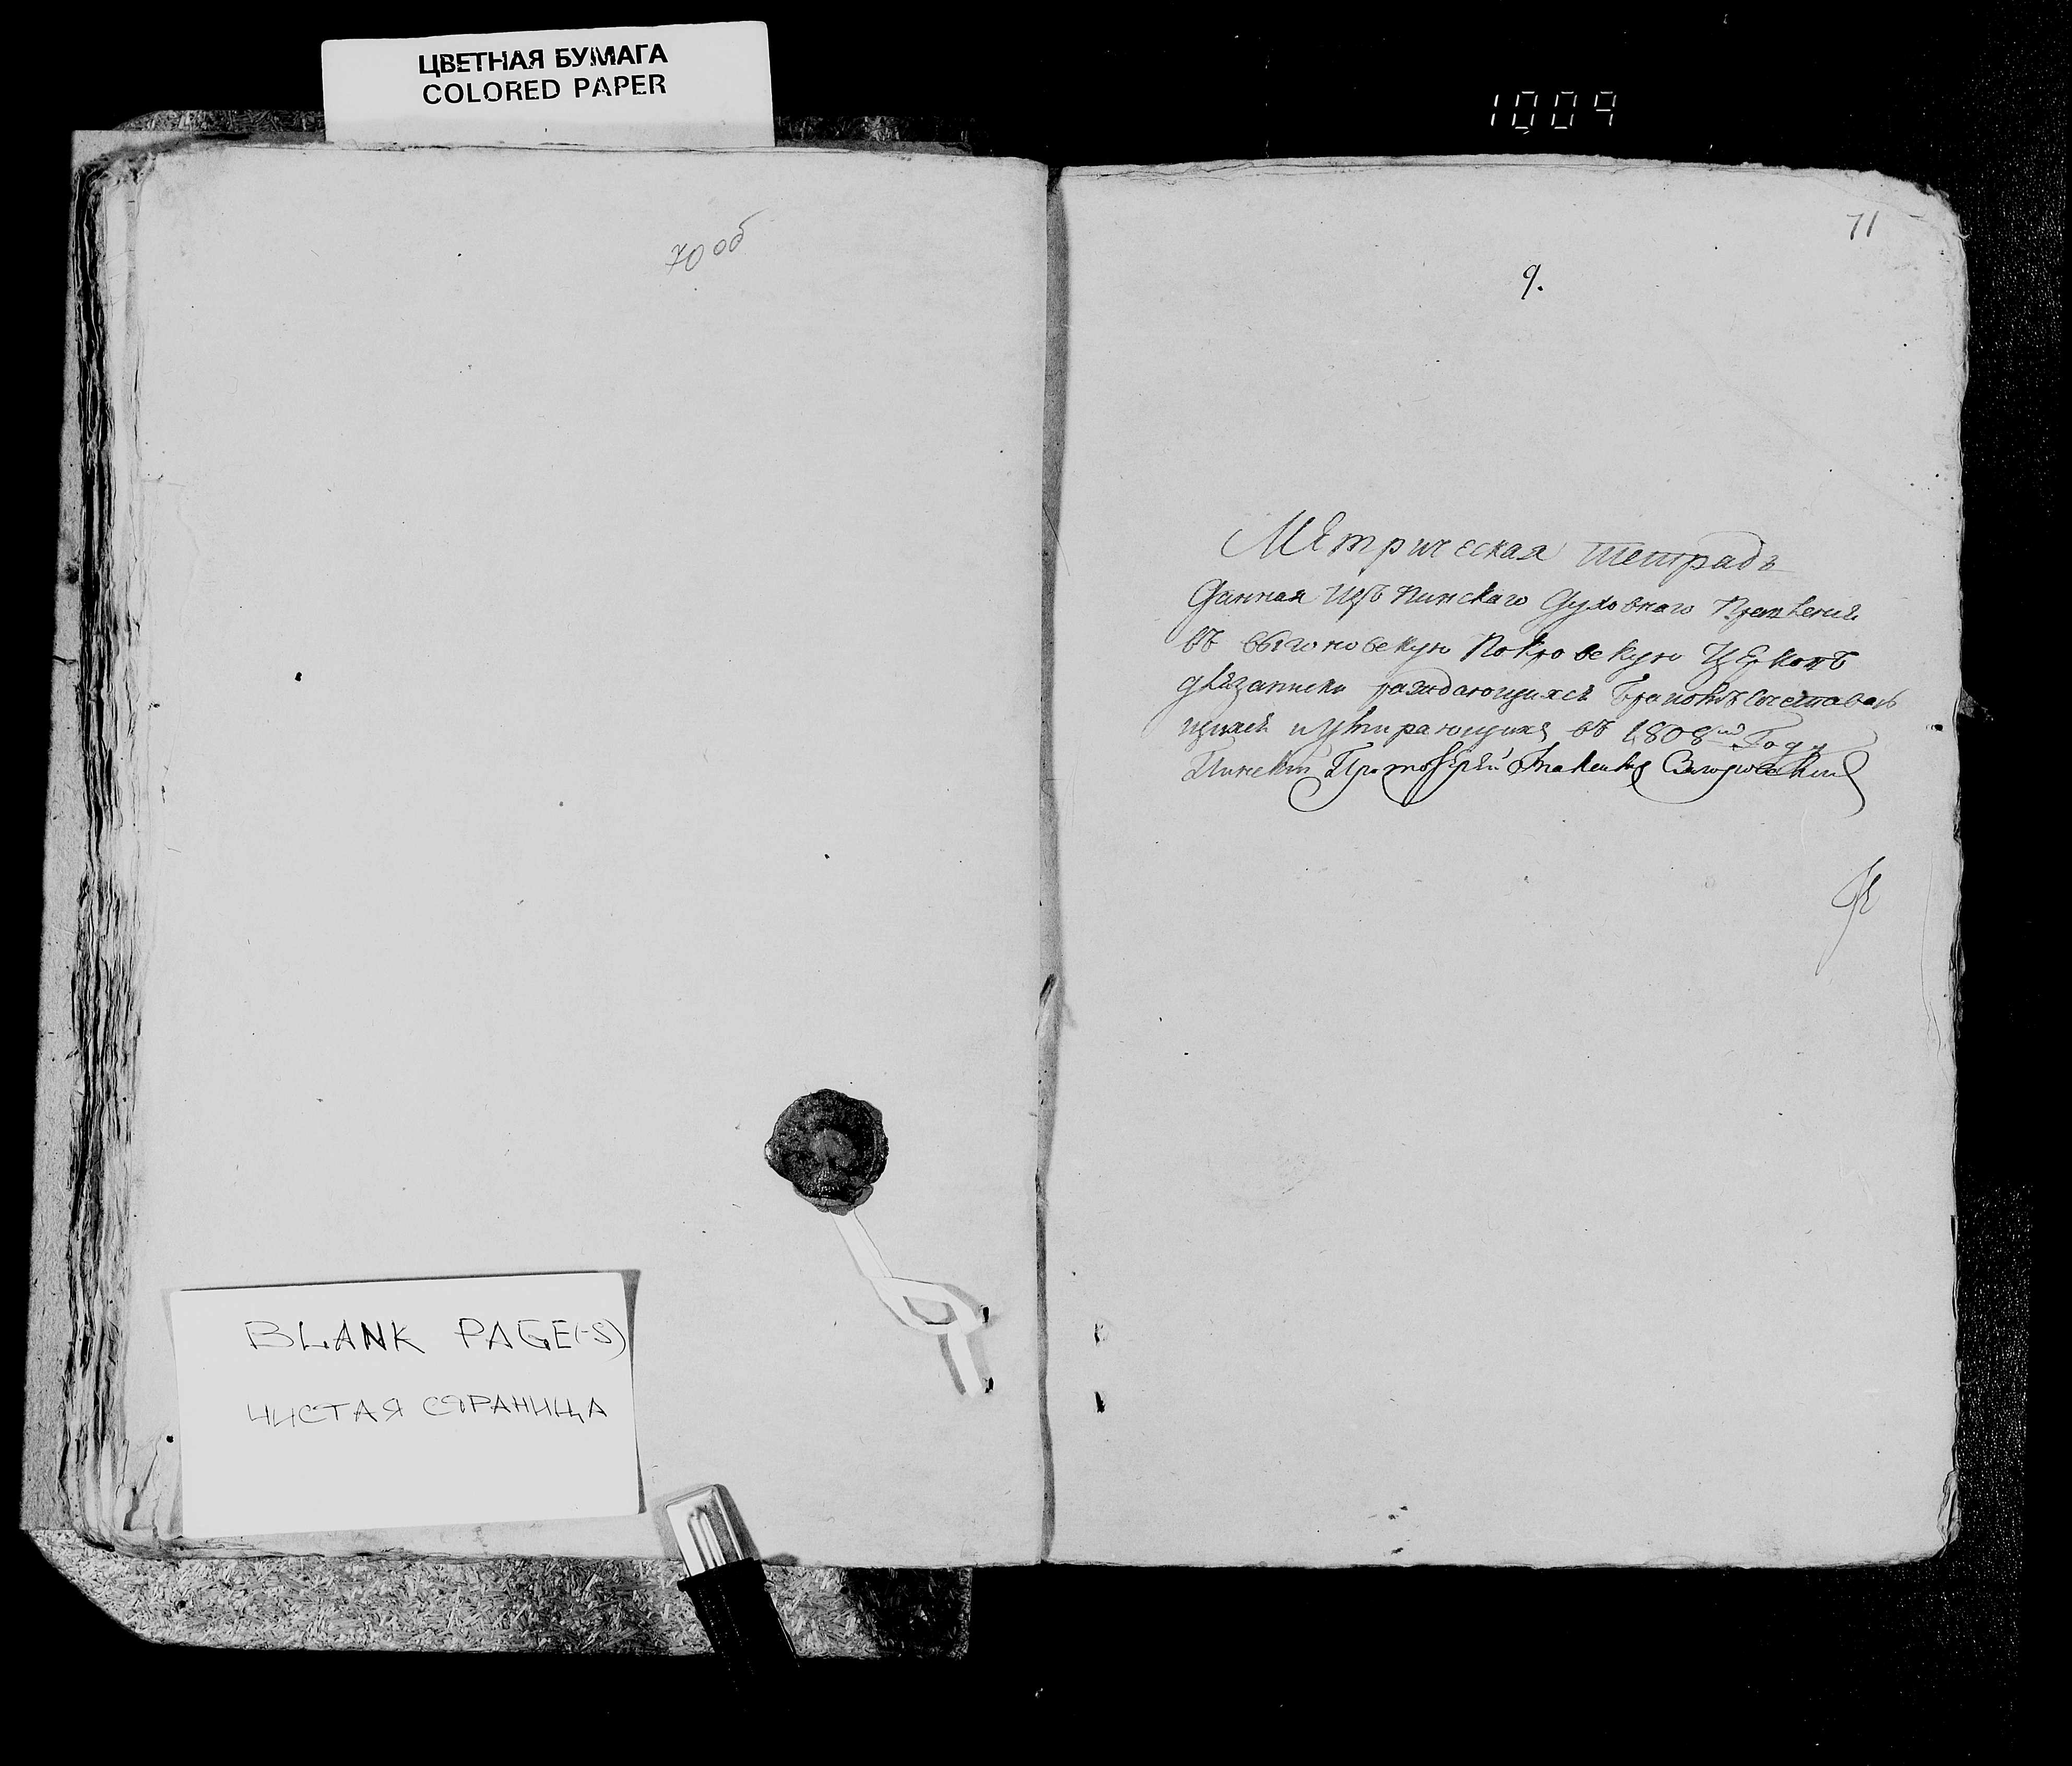 ЦВЕТНАЯ БУМАГА
COLORED PAPER
1009
70 об
71
9.
Метрическая тетрадь
Данная изъ Пинскаго Духовнаго Правления
въ выгоновскую Покровскую Церковъ
для записки раждающихся браковъ сочетаваю
щихся и умирающихъ въ 1808м Году
Пинский Протоіерей
BLANK PAGE(-S)
ЧИСТАЯ СТРАНИЦА